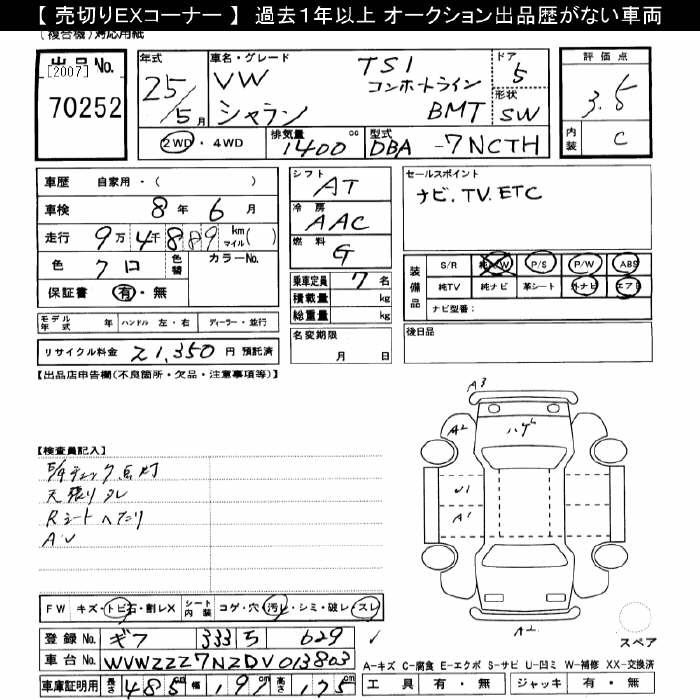 【 売切りEXコーナー 】 過去1年以上 オークション出品歴がない車両
(複合機)対応用紙
出品No.
[2007]
70252
年式
25/5月
車名・グレード
VW TSI
シャラン コンホートライン BMT
ドア
5
形状
SW
評価点
3.5
内装 C
2WD・4WD
排気量 1400 cc
型式 DBA -7NCTH
車歴 自家用・( )
車検 8年 6月
走行 9万4千889 km マイル( )
色 クロ 色替 カラーNo.
保証書 有・無
シフト AT
冷房 AAC
燃料 G
乗車定員 7名
積載量 kg
総重量 kg
名変期限
月 日
セールスポイント
ナビ.TV.ETC
装備品
S/R 純AW P/S P/W ABS
純TV 純ナビ 革シート 外ナビ エアB
ナビ型番:
後日品
モデル年式 年 ハンドル 左・右 ディーラー・並行
リサイクル料金 21,350 円 預託済
【出品店申告欄(不良箇所・欠品・注意事項等)】
【検査員記入】
チェック点灯
天張りタレ
Rシートへたり
AU
A3
A2
ハゲ
U1
A1
A2
FW キズ・トビ石・割レX シート内装 コゲ・穴・汚レ・シミ・破レ・スレ
登録No. ギフ 333 ち 629
車台No. WVWZZZ7NZDV013803
車庫証明用 長さ 485cm 幅 191cm 高さ 175cm
スペア
A-キズ C-腐食 E-エクボ S-サビ U-凹ミ W-補修 XX-交換済
工具 有・無 ジャッキ 有・無